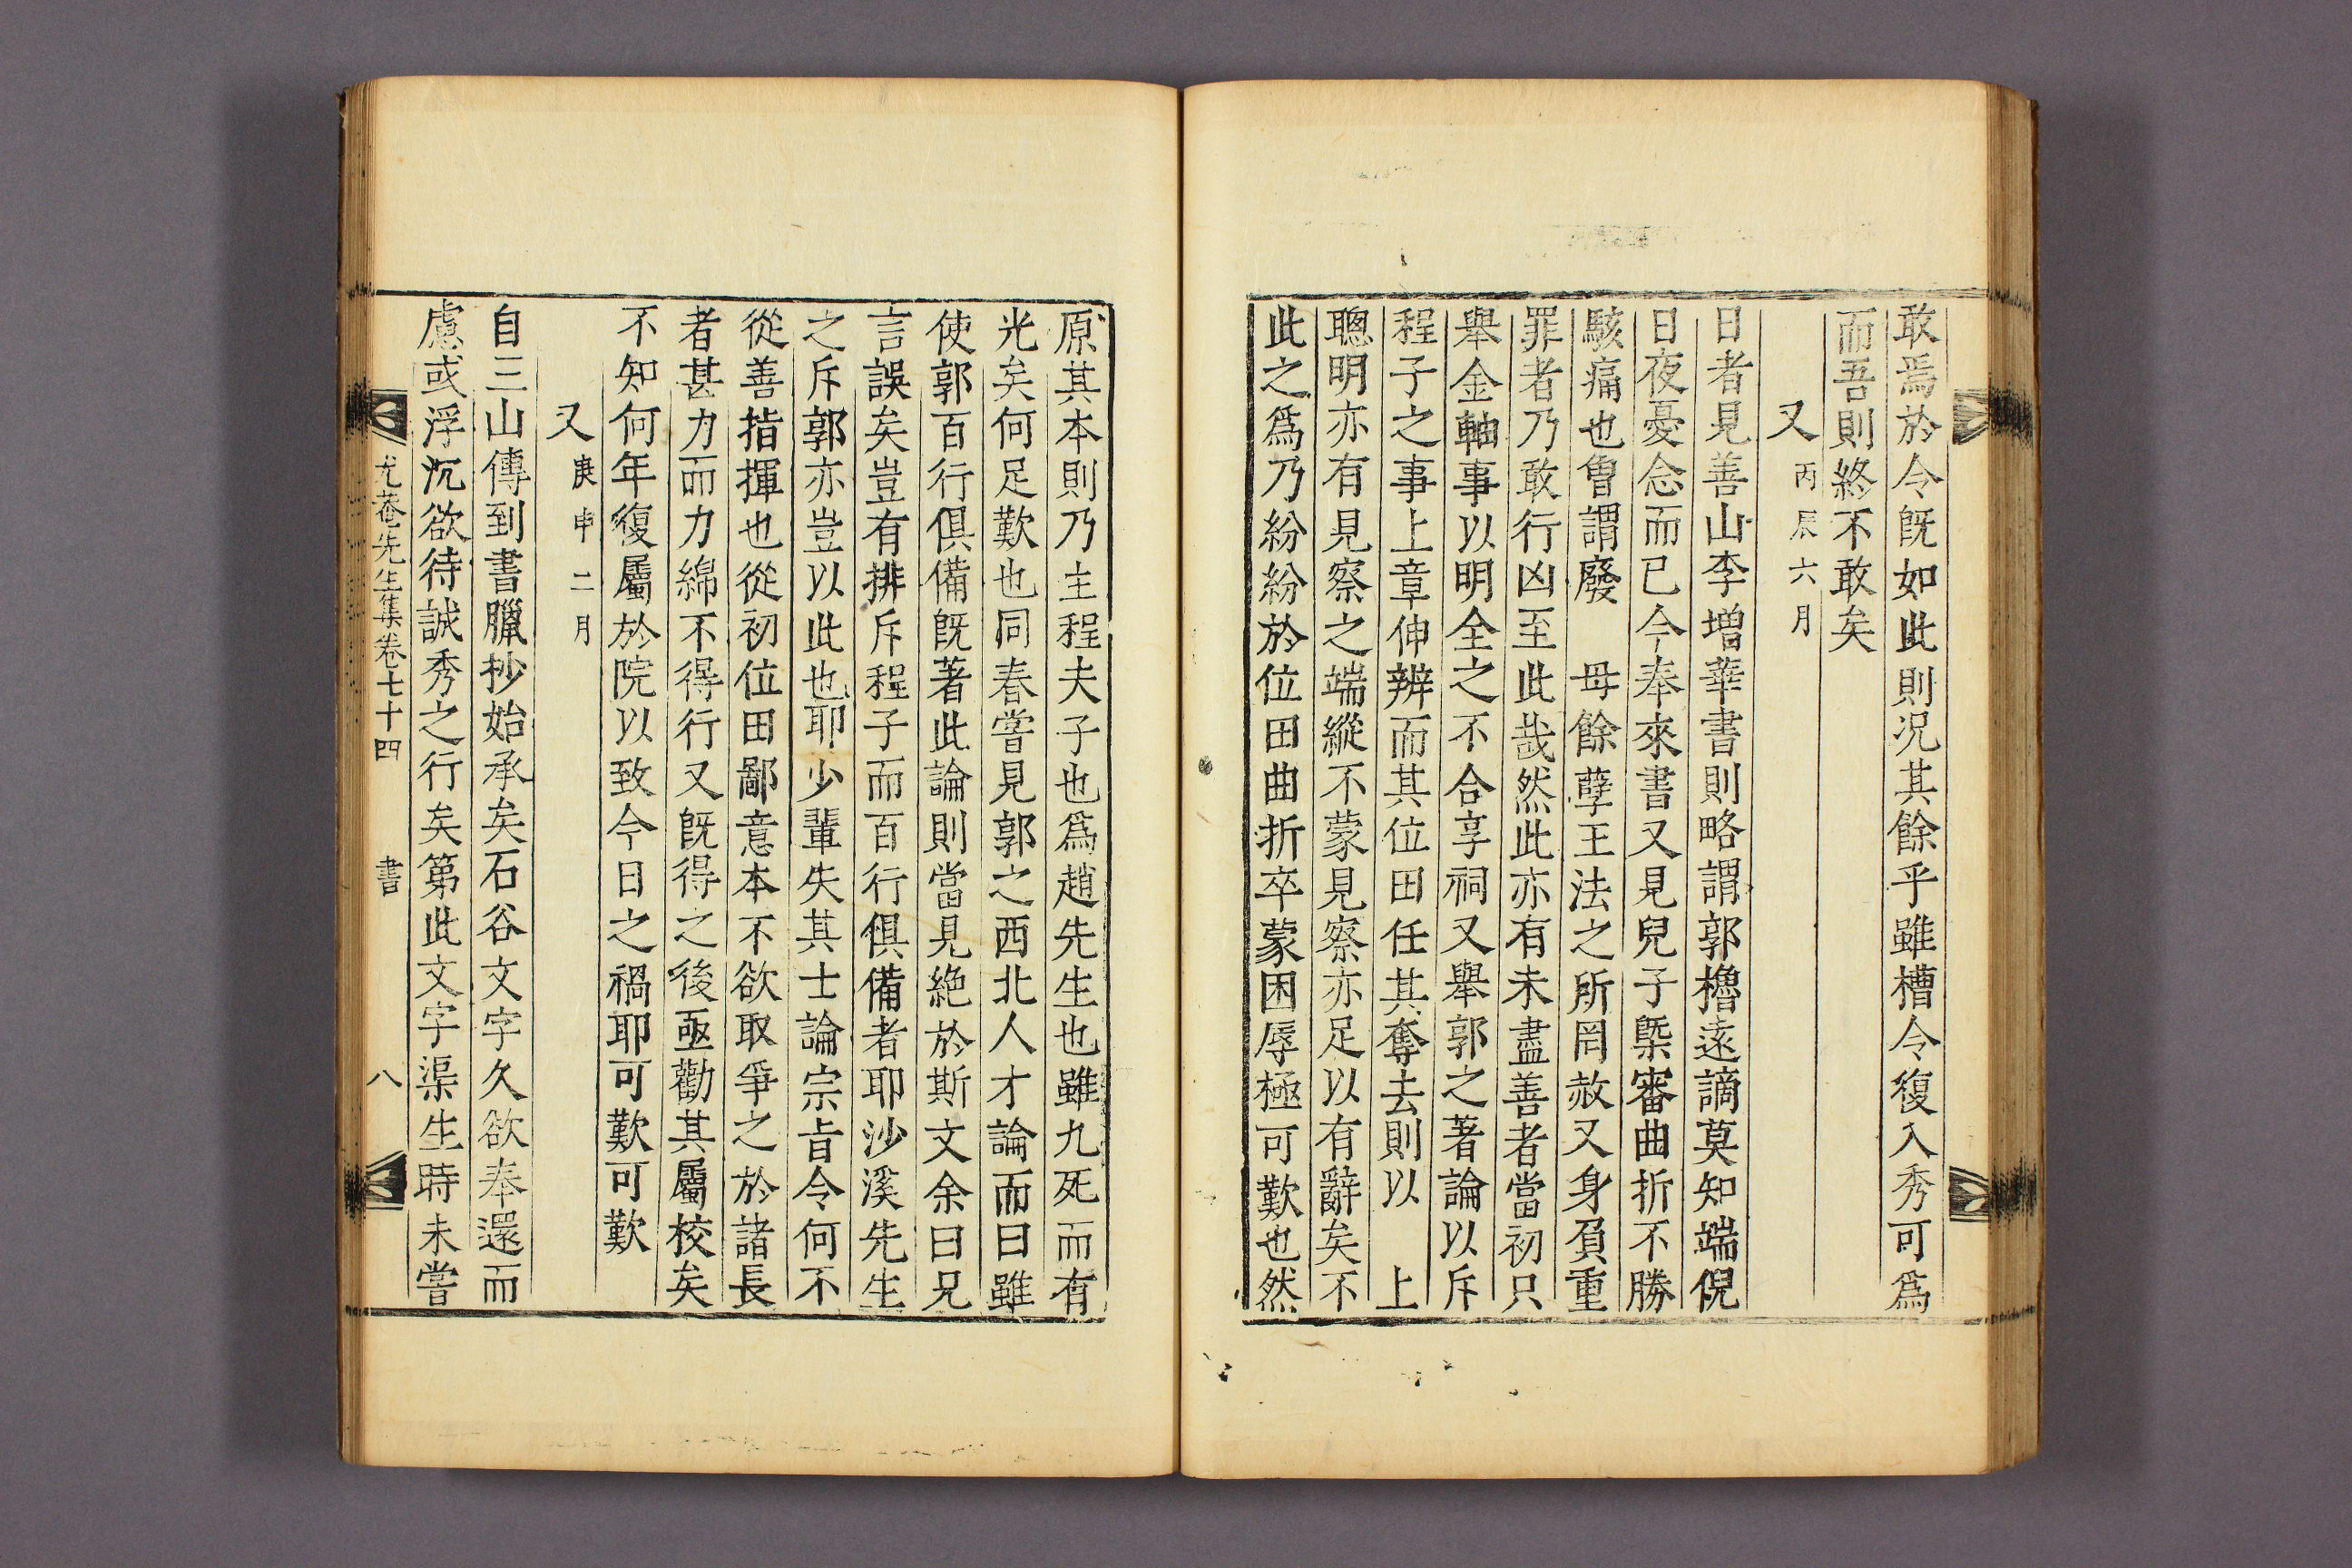 敢焉於今旣如此則况其餘乎雖槽令復入秀可爲
而吾則終不敢矣
又丙辰六月
日者見善山李增華書則略謂郭櫓遠謫莫知端倪
日夜憂念而已今奉來書又見兒子槩審曲折不勝
駭痛也曾謂廢 母餘孽王法之所罔赦又身負重
罪者乃敢行凶至此哉然此亦有未盡善者當初只
舉金軸事以明全之不合享祠又舉郭之著論以斥
程子之事上章伸辨而其位田任其奪去則以 上
聰明亦有見察之端縱不蒙見察亦足以有辭矣不
此之爲乃紛紛於位田曲折卒蒙困辱極可歎也然
原其本則乃主程夫子也爲趙先生也雖九死而有
光矣何足歎也同春嘗見郭之西北人才論而曰雖
使郭百行俱備旣著此論則當見絶於斯文余曰兄
言誤矣豈有排斥程子而百行俱備者耶沙溪先生
之斥郭亦豈以此也耶少輩失其士論宗旨今何不
從善指揮也從初位田鄙意本不欲取爭之於諸長
者甚力而力綿不得行又旣得之後亟勸其屬校矣
不知何年復屬於院以致今日之禍耶可歎可歎
又庚申二月
自三山傳到書臘抄始承矣石谷文字久欲奉還而
慮或浮沉欲待誠秀之行矣第此文字渠生時未嘗
尤菴先生集卷七十四 書 八